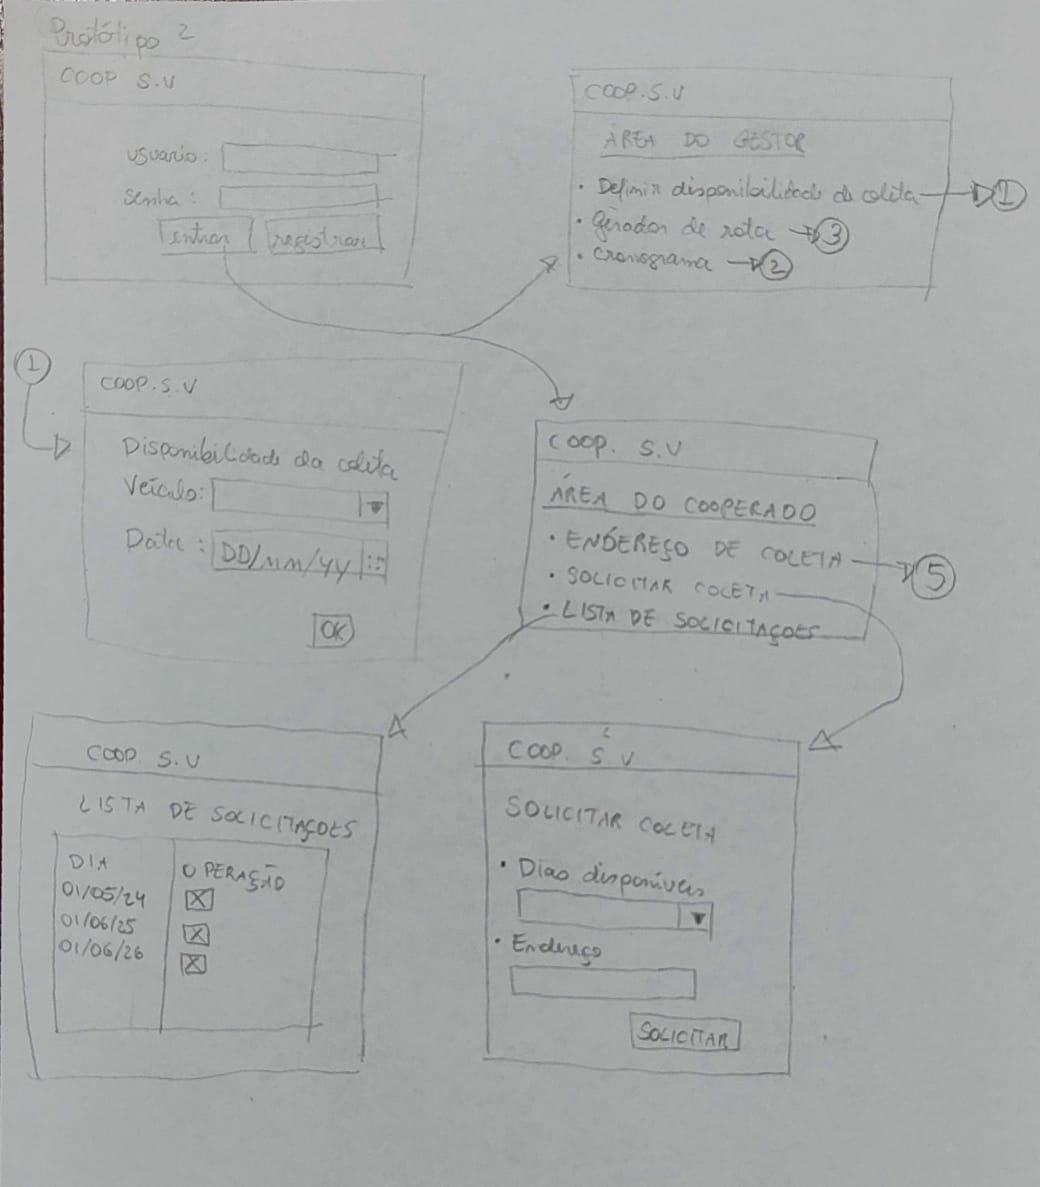 Protótipo 2
COOP S.V
usuario:
senha:
entrar
registrar
COOP.S.V
ÁREA DO GESTOR
• Definir disponibilidade de coleta 1
• gerador de rota 3
• cronograma 2
1
COOP.S.V
Disponibilidade da coleta
Veículo:
Data: DD/MM/YY
OK
COOP. S.V
ÁREA DO COOPERADO
• ENDEREÇO DE COLETA 5
• SOLICITAR COLETA
• LISTA DE SOLICITAÇOES
COOP. S.V
LISTA DE SOLICITAÇOES
DIA OPERAÇÃO
01/05/24 X
01/06/25 X
01/06/26 X
COOP. S.V
SOLICITAR COLETA
• Dias disponíveis
• Endereço
SOLICITAR